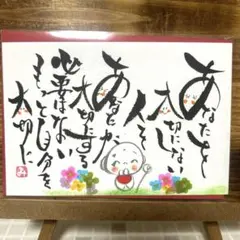 あなたを
大切にしない
人を
あなたが
大切にする
必要はない
もっと自分を
大切に